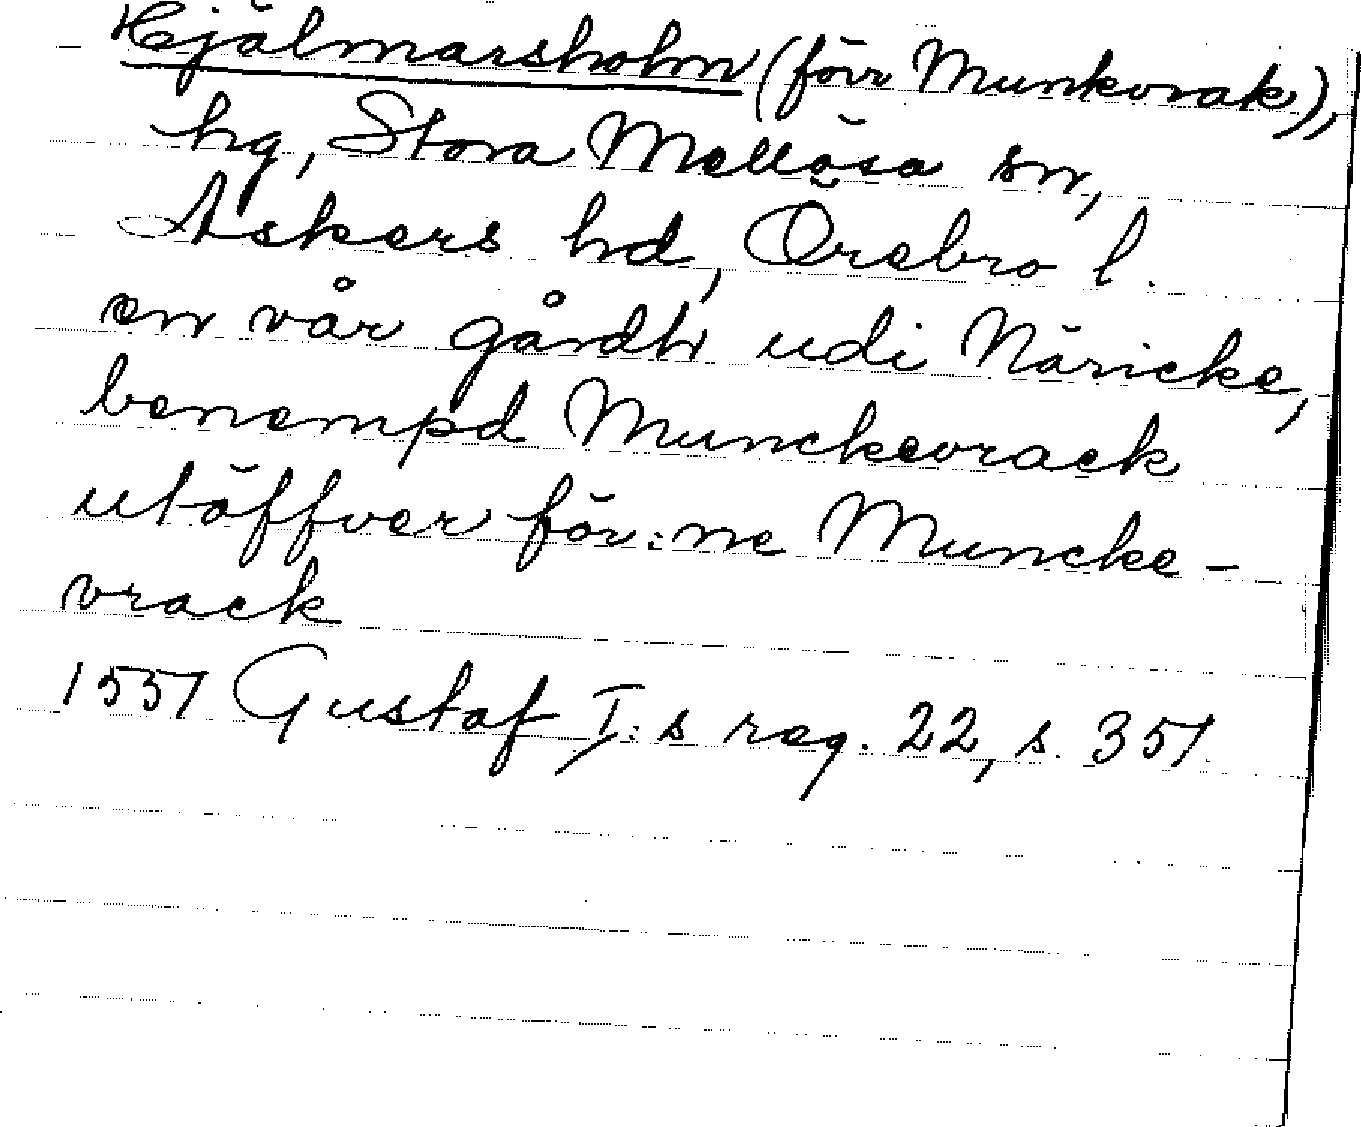 Hjälmarsholm (förr Munkvrak),
hg, Stora Mellösa sn,
Askers hd, Örebro l.
en vår gårdh udi Näricke,
benempd Munckevrack
utöffver för:ne Muncke-
vrack
1557 Gustaf I:s reg. 22, s. 357